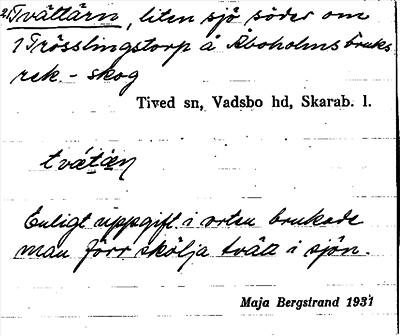 2) Tvättärn, liten sjö söder om
1 Trösslingstorp å Åboholms bruks
rek.-skog
Tived sn, Vadsbo hd, Skarab. l.
tvätän
Enligt uppgift i orten brukade
man förr skölja tvätt i sjön.
Maja Bergstrand 1931